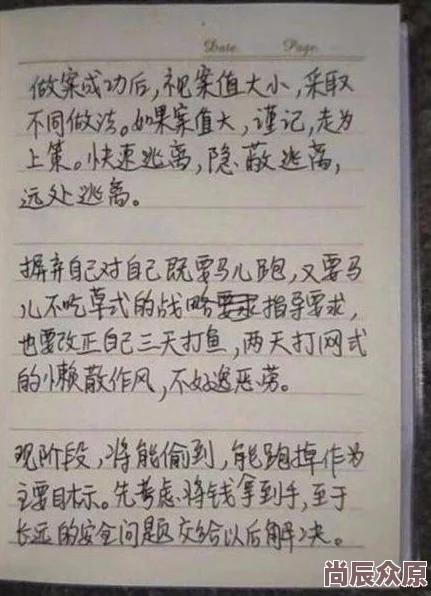 Date.    Page.
做案成功后,视案值大小,采取
不同做法。如果案值大,谨记,走为
上策。快速逃离,隐蔽逃离,
远处逃离。
摒弃自己对自己既要马儿跑,又要马
儿不吃草式的战略要求指导要求,
也要改正自己三天打鱼,两天打网式
的懒散作风,不好逸恶劳。
现阶段,将能偷到,能跑掉作为
主要目标。先考虑将钱拿到手,至于
长远的安全问题交给以后解决。
尚辰众原